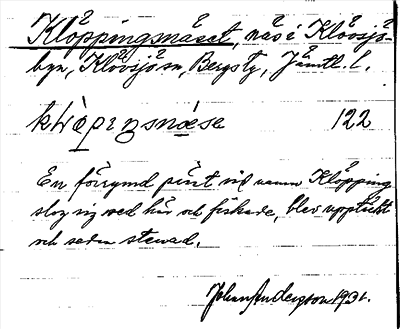 Klöppingsnäset, näs i Klövsjö-
byn, Klövsjö sn, Bergs tg, Jämtl. l.
122
En förrymd pint vid namn Klöpping
slog sig ned här och fiskade, blev upptäckt
och sedan stenad.
Johan Anderson 1931.